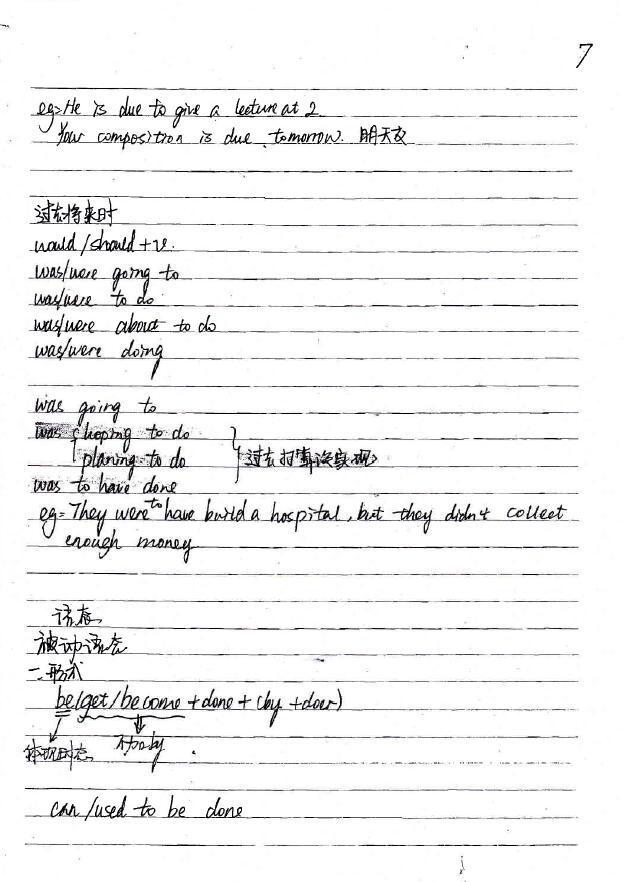 7
eg: He is due to give a lecture at 2
Your composition is due tomorrow. 明天交
过去将来时
would/should+v.
was/were going to
was/were to do
was/were about to do
was/were doing
was going to
was hoping to do
planing to do
过去打算没实现
was to have done
eg: They were to have build a hospital, but they didn't collect
enough money
语态
被动语态
一.形式
be(get/become+done+(by+doer)
体现时态 不加by
can/used to be done